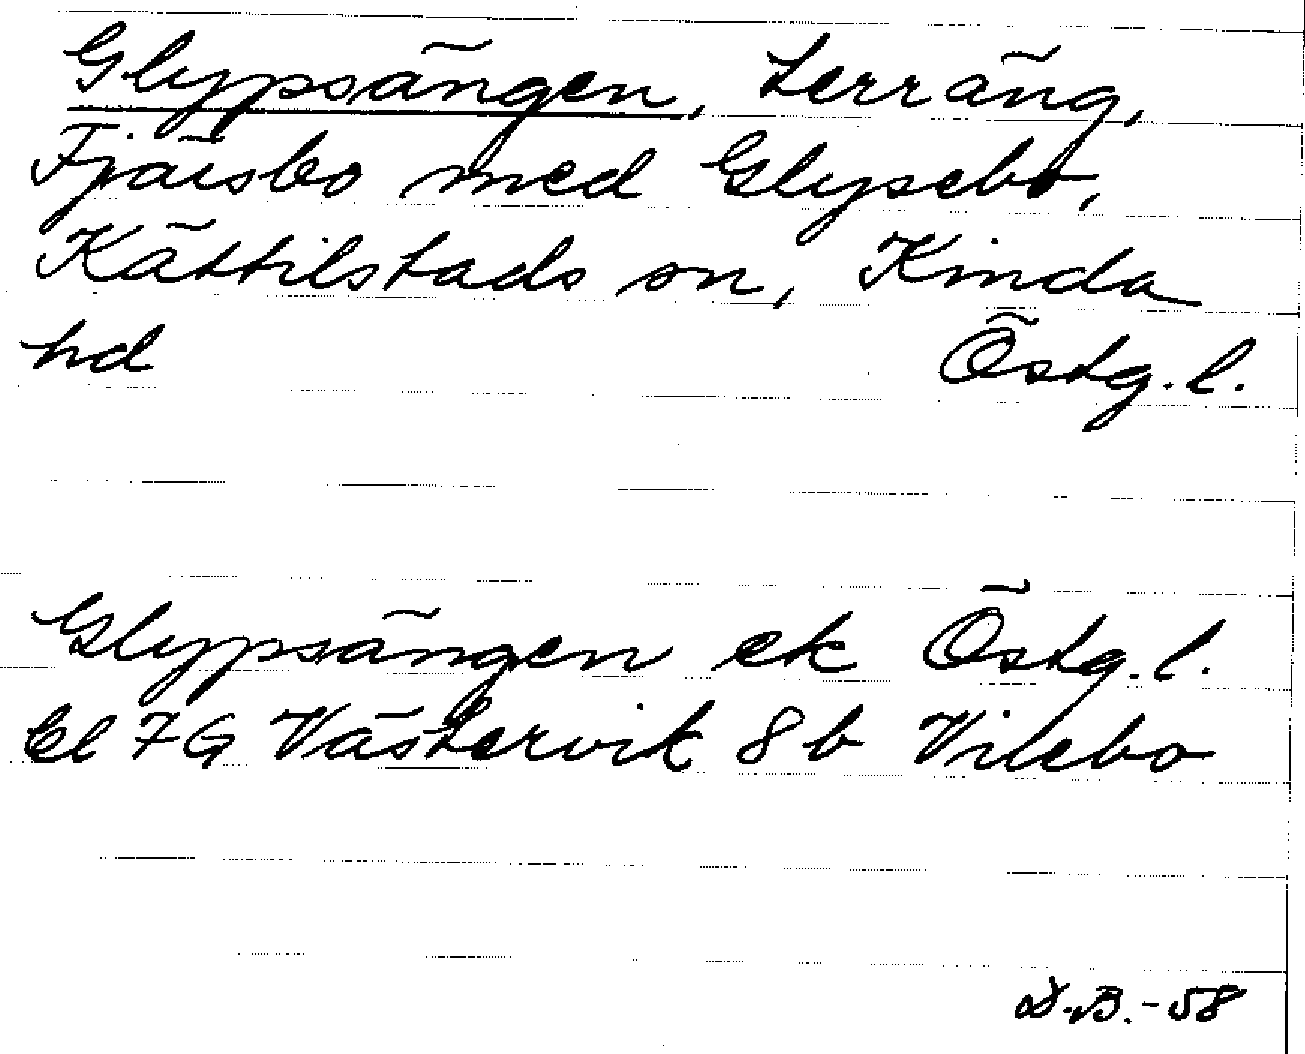 Glypsängen, terräng,
Fjärsbo med Glysebo,
Kättilstads sn, Kinda
hd Östg. l.
Glypsängen ek Östg. l.
bl 7G Västervik 8b Vilebo
D.B. - 58